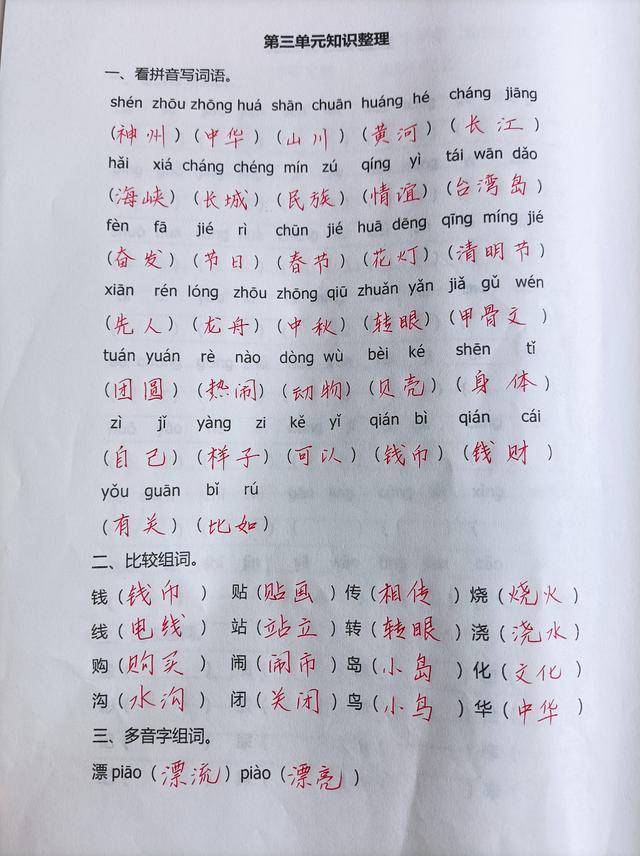 第三单元知识整理
一、看拼音写词语。
shén zhōu zhōng huá shān chuān huáng hé cháng jiāng
(神州)(中华)(山川)(黄河)(长江)
hǎi xiá cháng chéng mín zú qíng yì tái wān dǎo
(海峡)(长城)(民族)(情谊)(台湾岛)
fèn fā jié rì chūn jié huā dēng qīng míng jié
(奋发)(节日)(春节)(花灯)(清明节)
xiān rén lóng zhōu zhōng qiū zhuǎn yǎn jiǎ gǔ wén
(先人)(龙舟)(中秋)(转眼)(甲骨文)
tuán yuán rè nào dòng wù bèi ké shēn tǐ
(团圆)(热闹)(动物)(贝壳)(身体)
zì jǐ yàng zi kě yǐ qián bì qián cái
(自己)(样子)(可以)(钱币)(钱财)
yǒu guān bǐ rú
(有关)(比如)
二、比较组词。
钱(钱币) 贴(贴画)传(相传)烧(烧火)
线(电线) 站(站立)转(转眼)浇(浇水)
购(购买) 闹(闹市)岛(小岛)化(文化)
沟(水沟) 闭(关闭)鸟(小鸟)华(中华)
三、多音字组词。
漂 piāo(漂流)piào(漂亮)